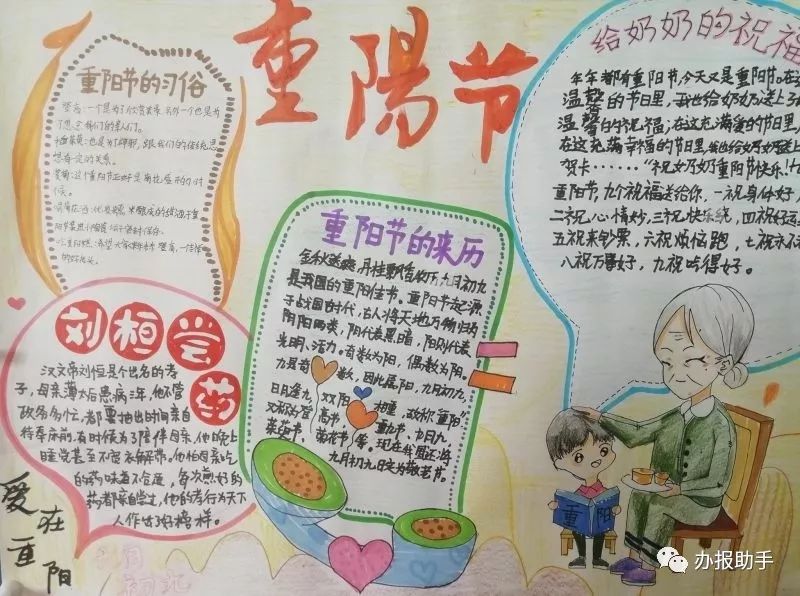 重陽节
重阳节的习俗
登高:一个是为了欣赏美景,另外一个也是为
了想念我们的亲人们。
插茱萸:也是为了辟邪,跟我们的传统思
想有一定的关系。
赏菊:这个重阳节正好是菊花盛开的时
候。
刘桓尝药
汉文帝刘恒是个出名的孝
子,母亲薄太后患病三年,他不管
政务多忙,都要抽出时间亲自
侍奉床前,有时候为了陪伴母亲,他晚上
睡觉甚至不宽衣解带。他怕母亲吃
的药味道不合适,每次煎好的
药都亲自尝过,他的孝行为天下
人作出好榜样。
爱在重阳
重阳节的来历
金秋送爽,丹桂飘香,农历九月初九
是我国的重阳佳节。重阳节起源
于战国时代,古人将天地万物归为
阴阳两类,阴代表黑暗,阳则代表
光明、活力。奇数为阳,偶数为阴。
九是奇数,因此属阳,九月初九,
日月逢九,双阳相重,故称"重阳"
又称为登高节、重九节、九月九、
茱萸节、菊花节等。现在我国还将
九月初九日定为敬老节。
给奶奶的祝福
年年都有重阳节,今天又是重阳节。在这
温馨的节日里,我也给奶奶送上了
温馨的祝福;在这充满爱的节日里,
在这充满幸福的节日里,我也给奶奶送上
贺卡……"祝奶奶重阳节快乐!九
重阳节,九个祝福送给你,一祝身体好,
二祝心情妙,三祝快乐绕,四祝好运
五祝来钞票,六祝烦恼跑,七祝永
八祝万事好,九祝吃得好。
重阳
办报助手